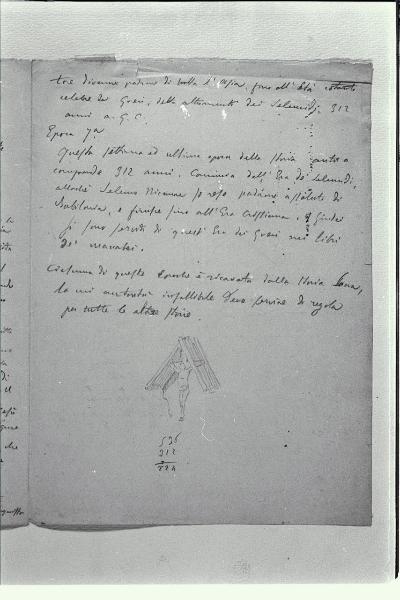 tore divenne padrone di tutta l'Asia, fino all'Età istituto
celebre da Greci, detta altrimenti dei Seleucidi, 312
anni a. G. C.
Epoca 7a
Questa settima ed ultima epoca della Storia antica
comprende 312 anni. Comincia dall'Era de' Seleucidi,
allorché Seleuco Nicanore si rese padrone assoluto di
Babilonia, e finisce fino all'Era Cristiana. I Giudei
si sono serviti di quest'Era dei Greci nei libri
de' Maccabei.
Ciascuna di queste Epoche è ricavata dalla Storia Sacra,
la cui autorità infallibile deve servire di regola
per tutte le altre storie.
536
312
224